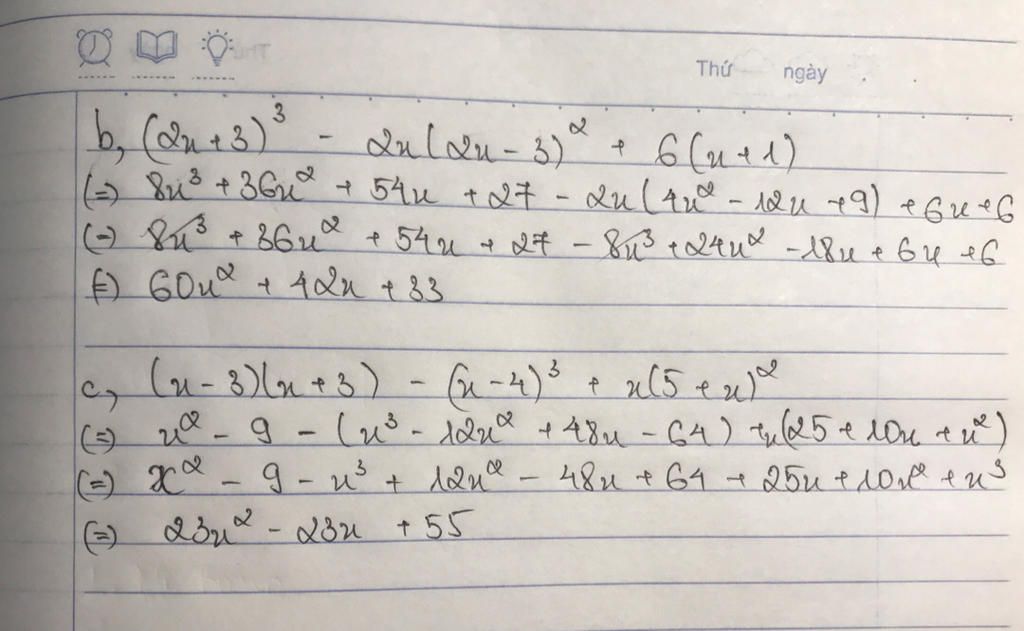 Thứ ngày
b, (2x+3)³ - 2x(2x-3)² + 6(x+1)
(=) 8x³ + 36x² + 54x + 27 - 2x(4x² - 12x + 9) + 6x + 6
(=) 8x³ + 36x² + 54x + 27 - 8x³ + 24x² - 18x + 6x + 6
(=) 60x² + 42x + 33
c, (x-3)(x+3) - (x-4)³ + x(5+x)²
(=) x² - 9 - (x³ - 12x² + 48x - 64) + x(25 + 10x + x²)
(=) x² - 9 - x³ + 12x² - 48x + 64 + 25x + 10x² + x³
(=) 23x² - 23x + 55